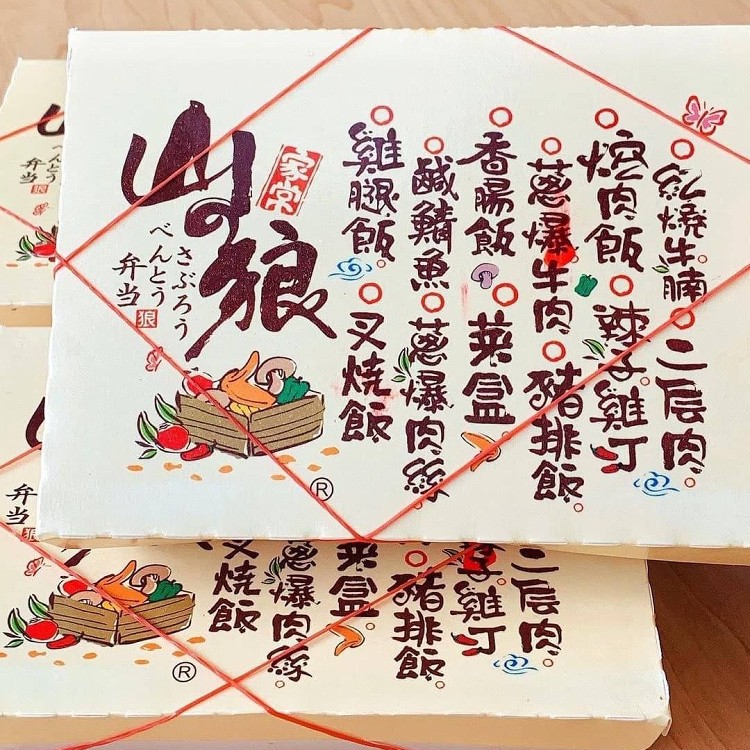 山の狼
家常
さぶろう
べんとう
弁当
狼
紅燒牛腩
二层肉
焢肉飯
辣子雞丁
蔥爆牛肉
豬排飯
香腸飯
菜盒
鹹鯖魚
蔥爆肉絲
雞腿飯
叉燒飯
®
べんとう
弁当
狼
弁当
狼
®
叉燒飯
蔥爆肉絲
菜盒
豬排飯
子雞丁
二层肉